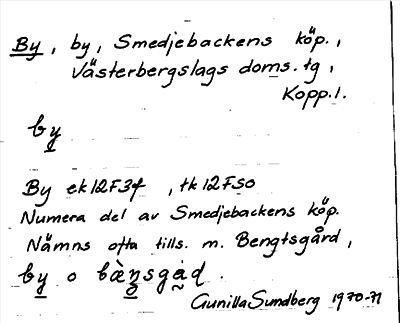 By, by, Smedjebackens köp.,
Västerbergslags doms. tg,
Kopp. l.
by
By ek 12F3f, tk 12FSO
Numera del av Smedjebackens köp.
Nämns ofta tills. m. Bengtsgård,
by o bæ̀ŋsgȧḍ.
Gunilla Sundberg 1970-71